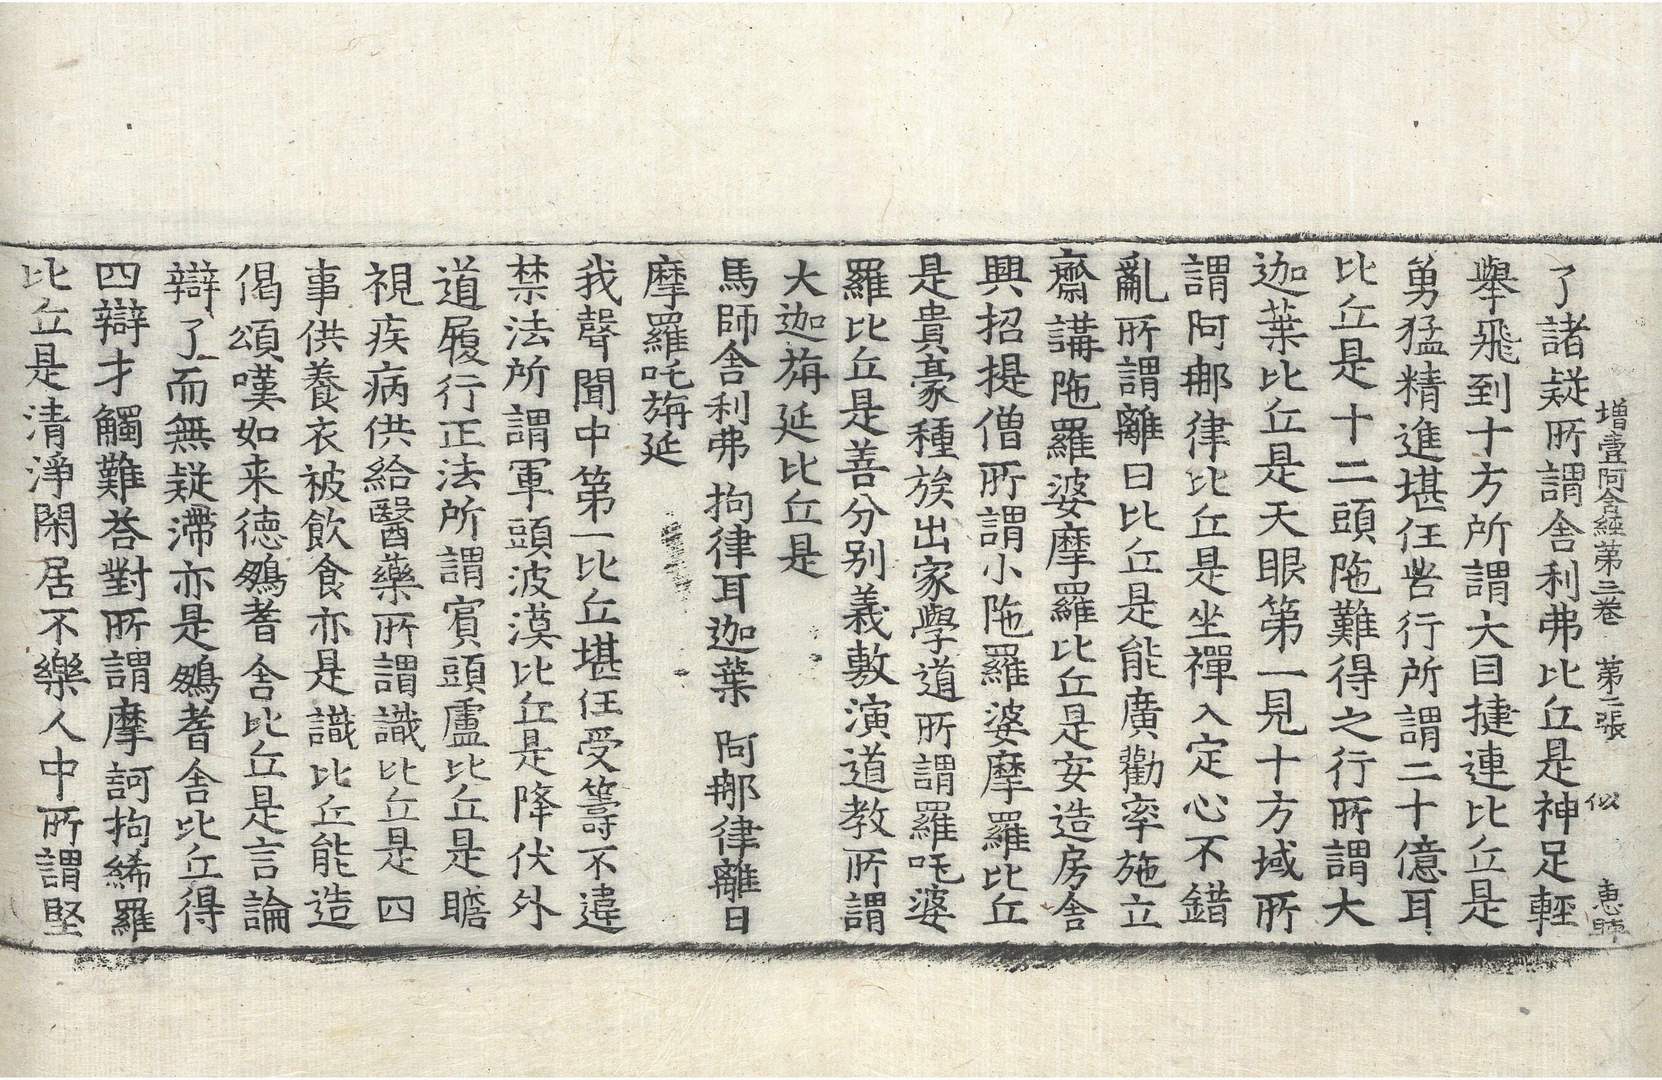 增壹阿含經第三卷 第二張 似
了諸疑所謂舍利弗比丘是神足輕
舉飛到十方所謂大目揵連比丘是
勇猛精進堪任苦行所謂二十億耳
比丘是十二頭陁難得之行所謂大
迦葉比丘是天眼第一見十方域所
謂阿那律比丘是坐禪入定心不錯
亂所謂離曰比丘是能廣勸率施立
齋講陁羅婆摩羅比丘是安造房舍
興招提僧所謂小陁羅婆摩羅比丘
是貴豪種族出家學道所謂羅吒婆
羅比丘是善分別義敷演道教所謂
大迦旃延比丘是
馬師舍利弗 拘律耳迦葉 阿那律離曰
摩羅吒旃延
我聲聞中第一比丘堪任受籌不違
禁法所謂軍頭波漠比丘是降伏外
道履行正法所謂賓頭盧比丘是瞻
視疾病供給醫藥所謂識比丘是四
事供養衣被飲食亦是識比丘能造
偈頌嘆如来德鵽耆舍比丘是言論
辯了而無疑滯亦是鵽耆舍比丘得
四辯才觸難荅對所謂摩訶拘絺羅
比丘是清淨閑居不樂人中所謂堅